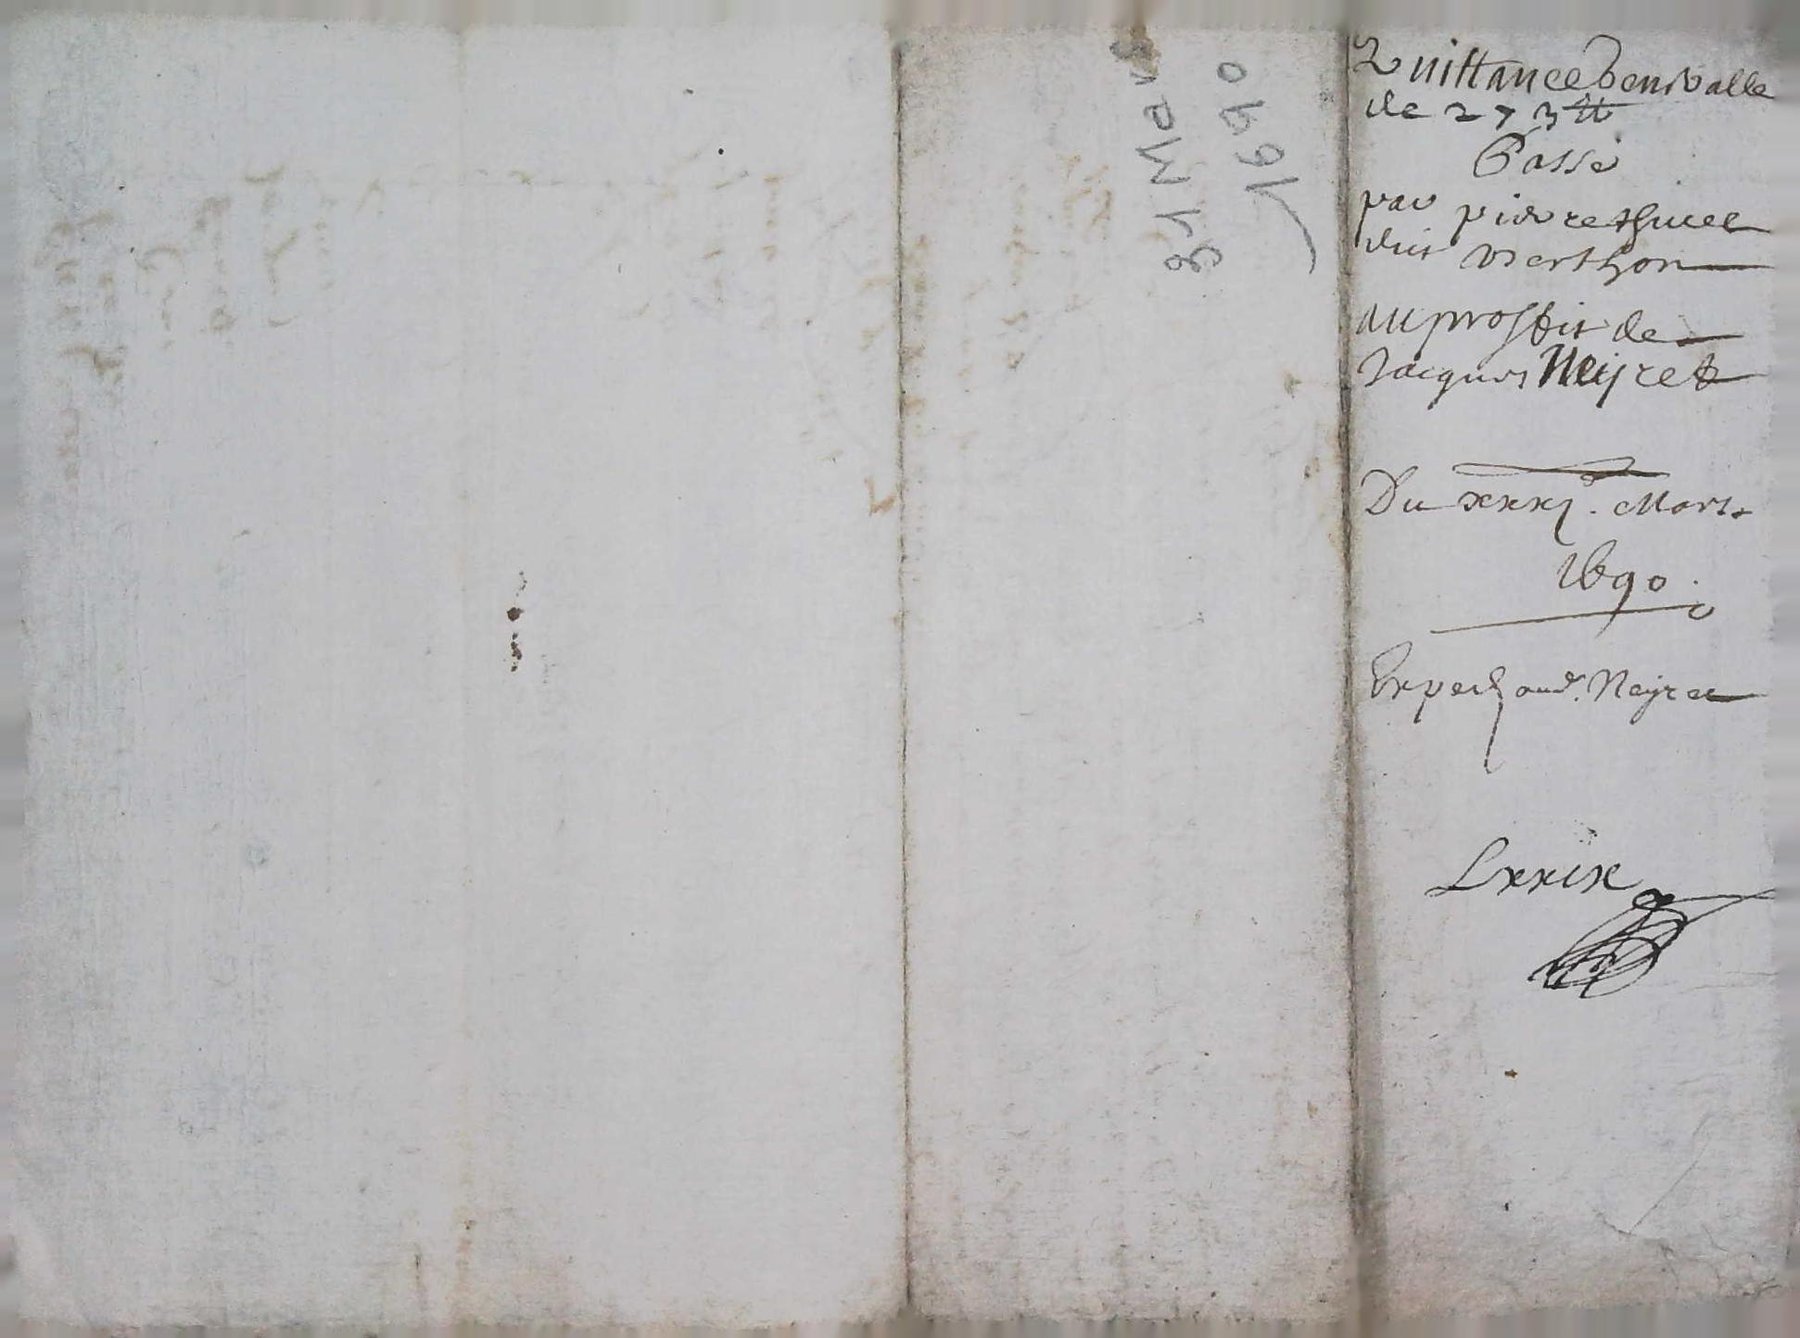 31 Mars
1690
Quittance
de 273 ₶
Passé
par pierre
dit Verthon
au proffit de
Jacques Neyret
Du xxxj. Mars
1690.
Exped. aud. Neyret
Lxxix